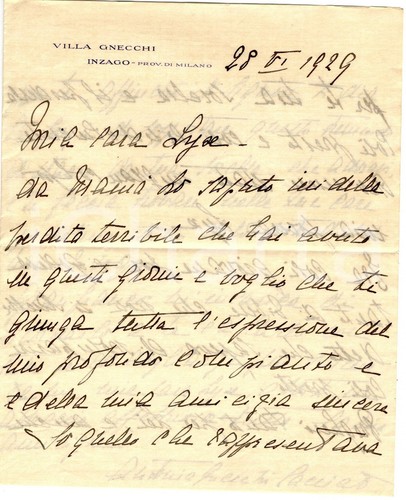 VILLA GNECCHI
INZAGO - PROV. DI MILANO
28 VI 1929
Mia cara Lyce -
da Mamà ho saputo ieri della
perdita terribile che hai avuto
in questi giorni e voglio che ti
giunga tutta l'espressione del
mio profondo compianto e
e della mia amicizia sincera
So quello che rappresentava